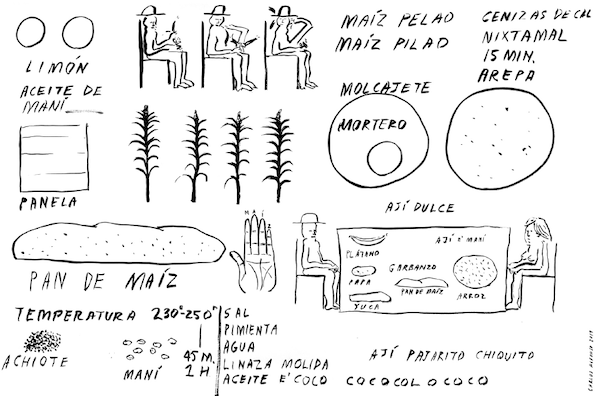 LIMÓN
ACEITE DE
MANÍ
PANELA
MAÍZ PELAO
MAÍZ PILAO
CENIZAS DE CAL
NIXTAMAL
15 MIN.
AREPA
MOLCAJETE
MORTERO
PAN DE MAÍZ
M A Í Z
AJÍ DULCE
PLÁTANO
PAPA
YUCA
GARBANZO
PAN DE MAÍZ
AJÍ E' MANÍ
ARROZ
TEMPERATURA 230°-250°
ACHIOTE
MANÍ
45 M.
1 H
SAL
PIMIENTA
AGUA
LINAZA MOLIDA
ACEITE E' COCO
AJÍ PAJARITO CHIQUITO
COCOCOLOCOCO